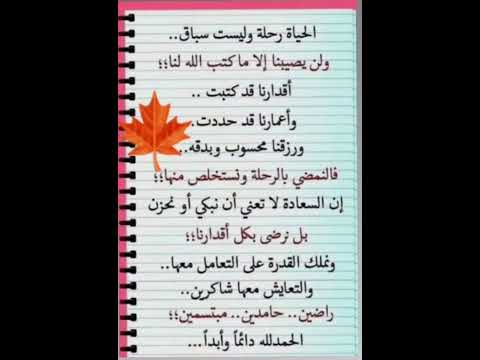 الحياة رحلة وليست سباق..
ولن يصيبنا إلا ما كتب الله لنا؛؛
أقدارنا قد كتبت ..
وأعمارنا قد حددت..
ورزقنا محسوب وبدقه..
فالنمضي بالرحلة ونستخلص منها؛؛
إن السعادة لا تعني أن نبكي أو نحزن
بل نرضى بكل أقدارنا؛؛
ونملك القدرة على التعامل معها..
والتعايش معها شاكرين..
راضين.. حامدين.. مبتسمين؛؛
الحمدلله دائماً وأبداً...